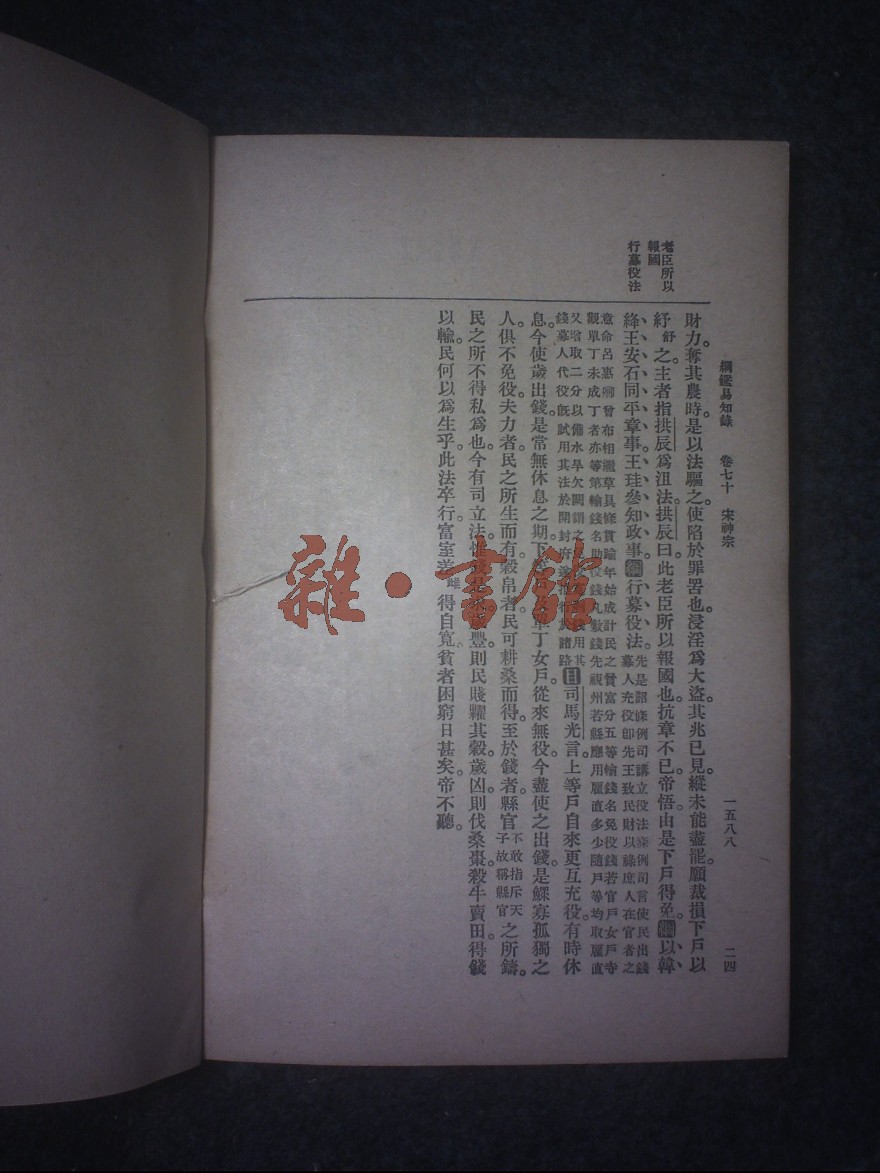 綱鑑易知錄 卷七十 宋神宗 一五八八 二四
老臣所以
報國
行募役法
財力。奪其農時。是以法驅之。使陷於罪罟也。浸淫爲大盜。其兆已見。縱未能盡罷。願裁損下戶以
紓舒之。主者指拱辰爲沮法。拱辰曰。此老臣所以報國也。抗章不已。帝悟。由是下戶得免。綱以韓
絳王安石同平章事。王珪參知政事。綱行募役法。先是詔條例司講立役法條例司言使民出錢
募人充役卽先王致民財以祿庶人在官者之
意命呂惠卿曾布相繼草具條貫踰年始成計民之貧富分五等輸錢名免役錢若官戶女戶寺
觀單丁未成丁者亦等第輸錢名助役錢凡敷錢先視州若縣應用雇直多少隨戶等均取雇直
又增取二分以備水旱欠閣謂之用其
錢募人代役旣試用其法於開封府遂推行於諸路
目司馬光言上等戶自來更互充役。有時休
息。今使歲出錢。是常無休息之期。下等戶及單丁女戶。從來無役。今盡使之出錢。是鰥寡孤獨之
人。俱不免役。夫力者。民之所生而有。穀帛者。民可耕桑而得。至於錢者。縣官不敢指斥天
子故稱縣官之所鑄。
民之所不得私爲也。今有司立法。惟錢是求。歲豐。則民賤糶其穀。歲凶。則伐桑棗。殺牛賣田。得錢
以輸。民何以爲生乎。此法卒行。富室差得自寬。貧者困窮日甚矣。帝不聽。
雜·書館